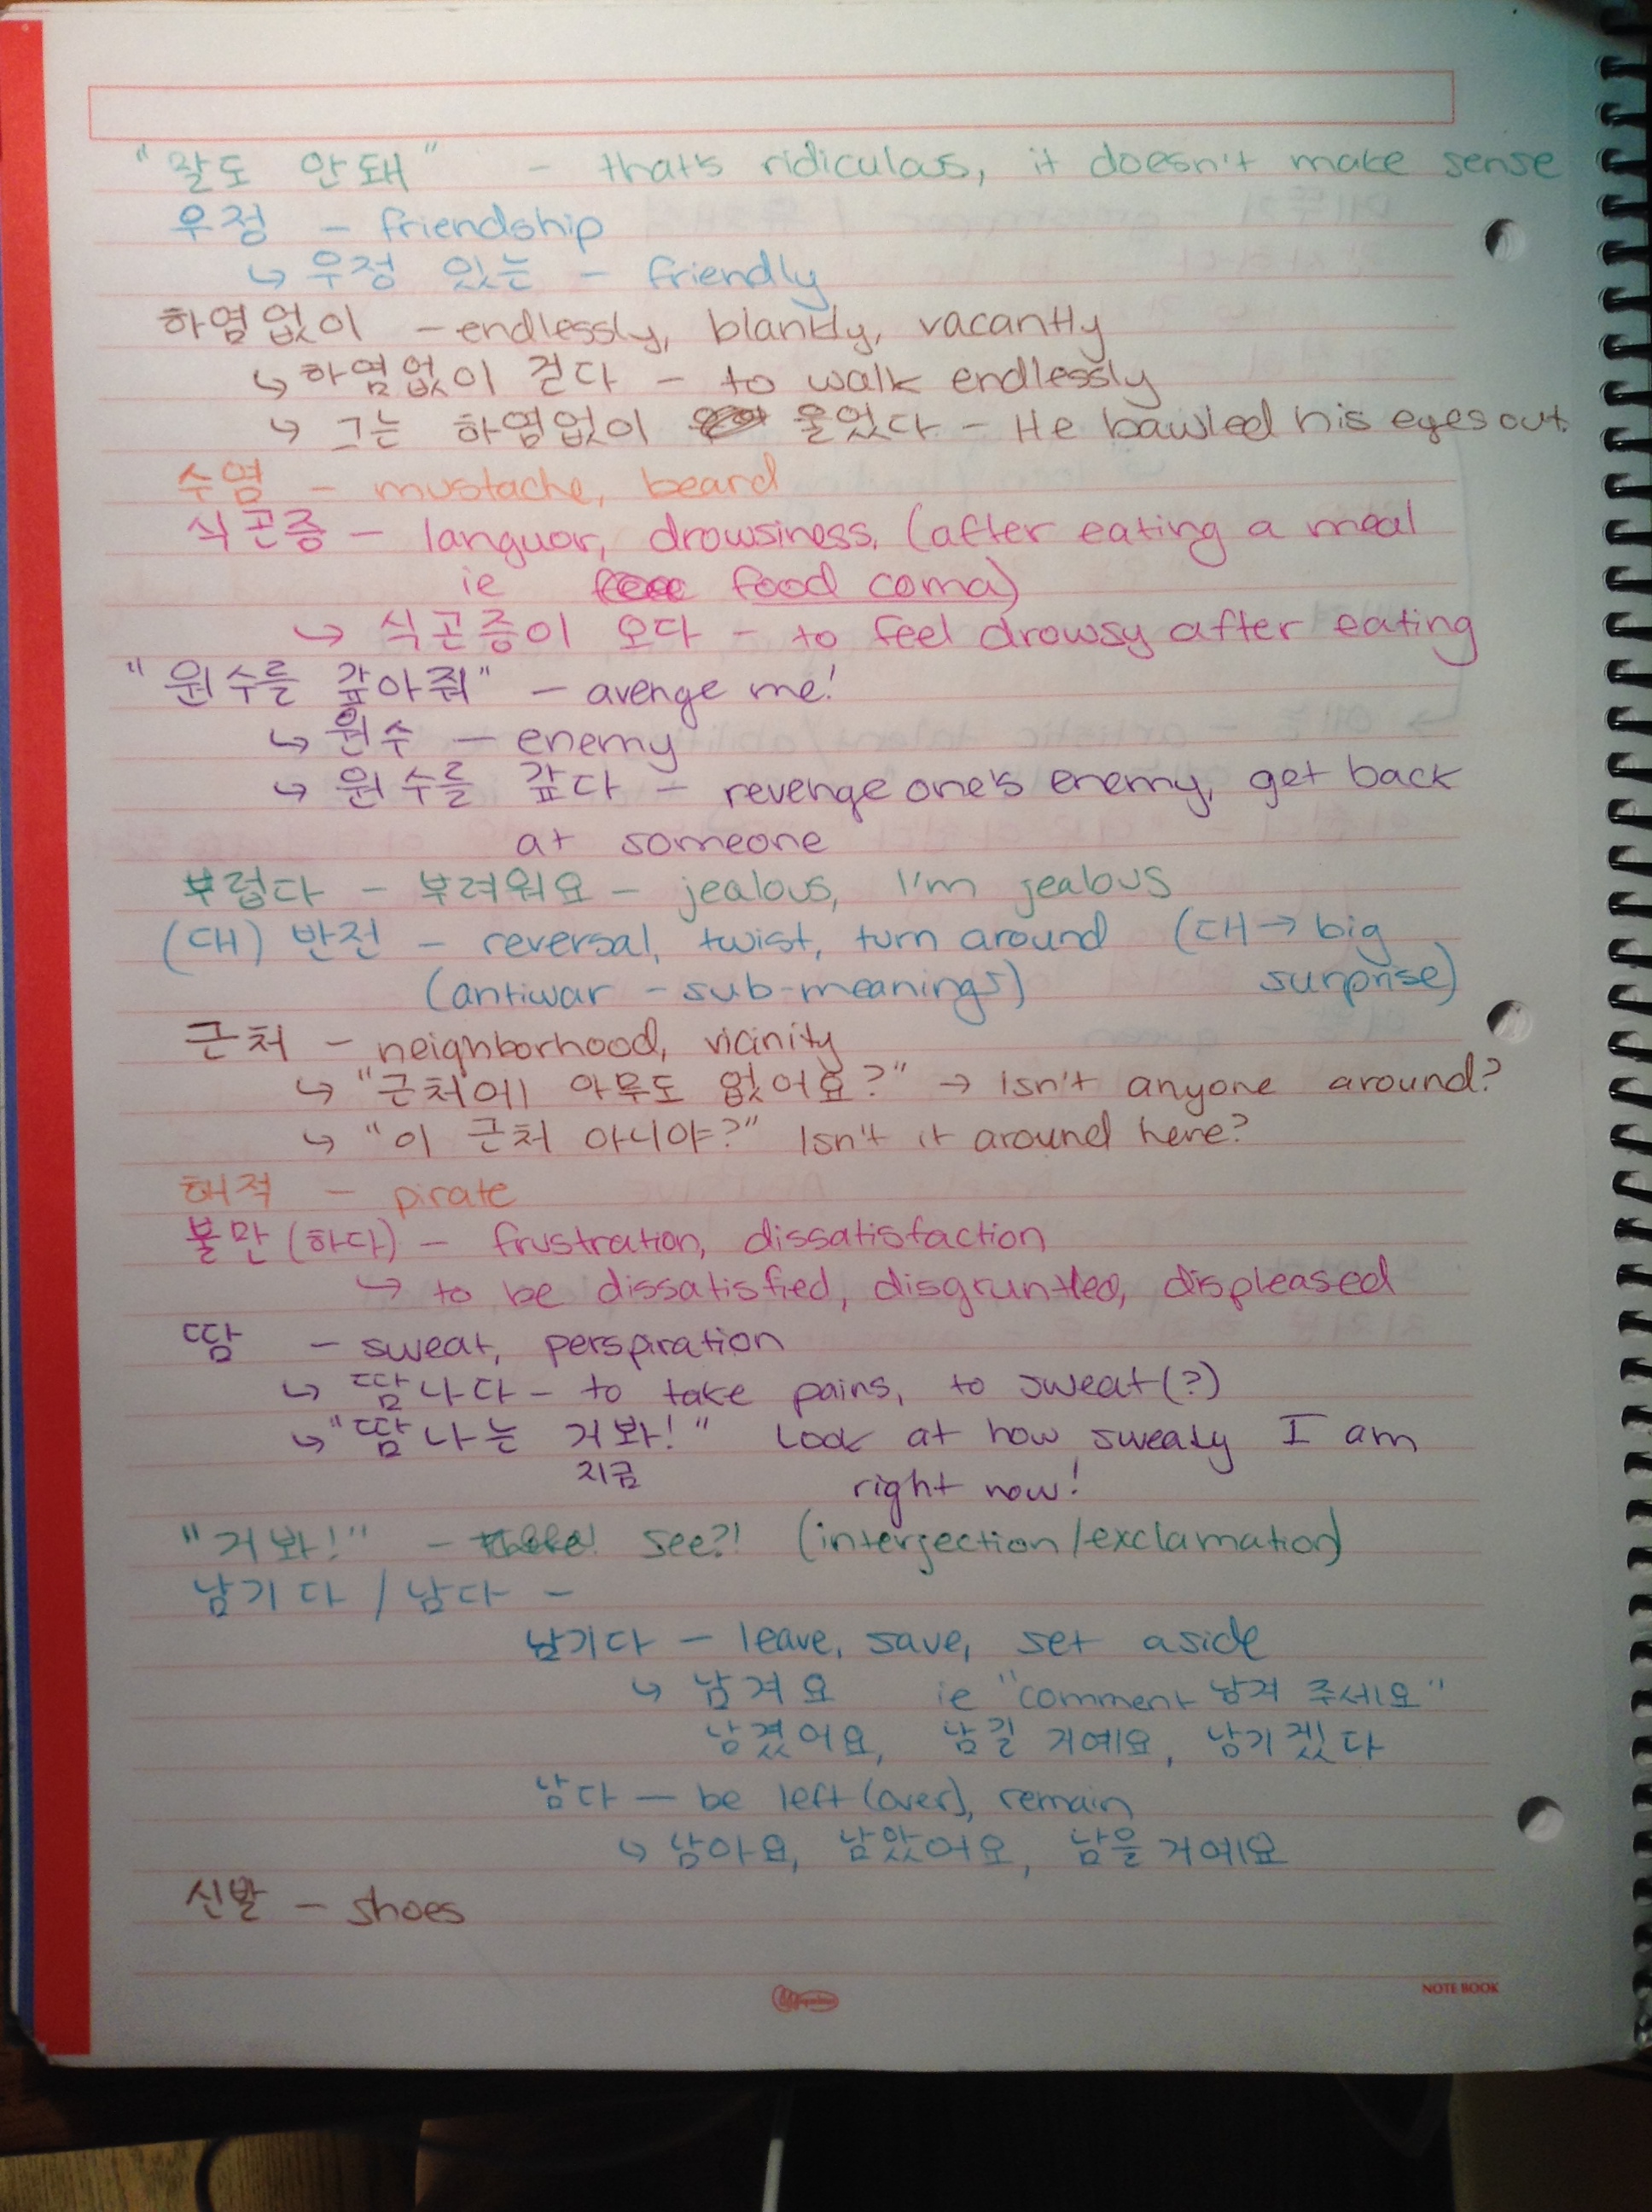 "말도 안돼" - that's ridiculous, it doesn't make sense
우정 - friendship
↳ 우정 있는 - friendly
하염없이 - endlessly, blankly, vacantly
↳ 하염없이 걷다 - to walk endlessly
↳ 그는 하염없이 울었다 - He bawled his eyes out.
수염 - mustache, beard
식곤증 - languor, drowsiness, (after eating a meal
ie food coma)
↳ 식곤증이 오다 - to feel drowsy after eating
"원수를 갚아줘" - avenge me!
↳ 원수 - enemy
↳ 원수를 갚다 - revenge one's enemy, get back
at someone
부럽다 -부려워요 - jealous, I'm jealous
(대) 반전 - reversal, twist, turn around (대 → big
(antiwar - sub-meanings) surprise)
근처 - neighborhood, vicinity
↳ "근처에 아무도 없어요?" → Isn't anyone around?
↳ "이 근처 아니야?" Isn't it around here?
해적 - pirate
불만 (하다) - frustration, dissatisfaction
↳ to be dissatisfied, disgruntled, displeased
땀 - sweat, perspiration
↳ 땀나다 - to take pains, to sweat (?)
↳ "땀나는 거봐!" Look at how sweaty I am
지금 right now!
"거봐!" - see?! (interjection/exclamation)
남기다 / 남다 -
남기다 - leave, save, set aside
↳ 남겨요 ie "comment 남겨 주세요"
남겼어요, 남길 거예요, 남기겠다
남다 - be left (over), remain
↳ 남아요, 남았어요, 남을 거예요
신발 - shoes
NOTE BOOK